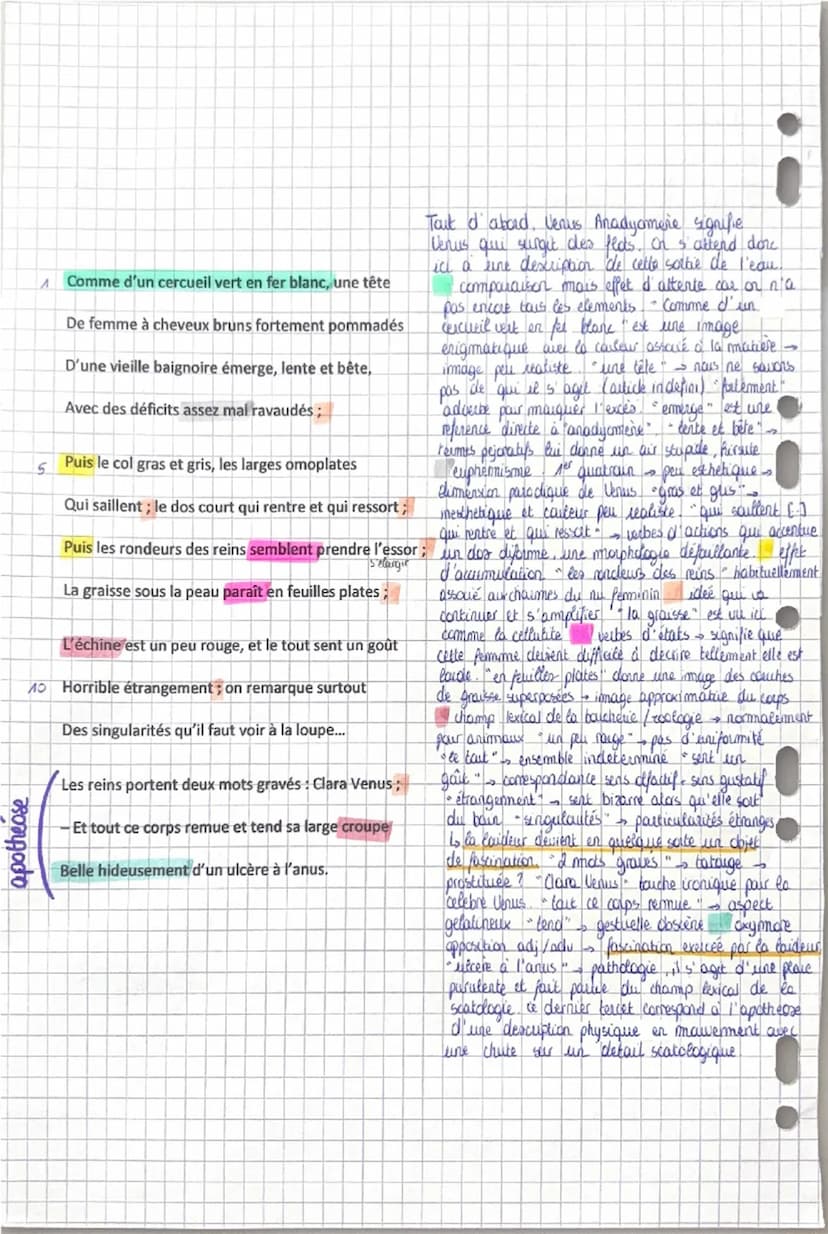 1 Comme d'un cercueil vert en fer blanc, une tête
De femme à cheveux bruns fortement pommadés
D'une vieille baignoire émerge, lente et bête,
Avec des déficits assez mal ravaudés ;
5 Puis le col gras et gris, les larges omoplates
Qui saillent ; le dos court qui rentre et qui ressort ;
Puis les rondeurs des reins semblent prendre l'essor ;
s'élargir
La graisse sous la peau paraît en feuilles plates ;
L'échine est un peu rouge, et le tout sent un goût
10 Horrible étrangement ; on remarque surtout
Des singularités qu'il faut voir à la loupe...
Les reins portent deux mots gravés : Clara Venus ;
– Et tout ce corps remue et tend sa large croupe
Belle hideusement d'un ulcère à l'anus.
apothéose
Tout d'abord, Venus Anadyomène signifie
Venus qui surgit des flots. On s'attend donc
ici à une description de cette sortie de l'eau.
comparaison mais effet d'attente car on n'a
pas encore tous les elements. "Comme d'un
cercueil vert en fer blanc" est une image
enigmatique avec la couleur associé à la matière →
image peu réaliste. "une tête" → nous ne savons
pas de qui il s'agit (article indefini) "fortement"
adverbe pour marquer l'excès. "emerge" est une
reference directe à "anadyomène". "lente et bête" →
termes pejoratifs lui donne un air stupide,
l'euphémisme. 1er quatrain → peu esthetique →
dimension parodique de Venus "gras et gris" →
inesthetique et couleur peu realiste. "qui saillent [...]
qui rentre et qui ressort" → verbes d'actions qui accentue
un dos difforme, une morphologie défaillante. effet
d'accumulation "les rondeurs des reins" habituellement
associé aux charmes du nu feminin idée qui va
continuer et s'amplifier "la graisse" est vu ici
comme la cellulite verbes d'états → signifie que
cette femme devient difficile à décrire tellement elle est
laide. "en feuilles plates" donne une image des couches
de graisse superposées → image approximative du corps
champ lexical de la boucherie / zoologie → normalement
pour animaux "un peu rouge" → pas d'uniformité
"le tout" → ensemble indeterminé "sent un
goût" → correspondance sens olfactif + sens gustatif
"étrangement" → sent bizarre alors qu'elle sort
du bain "singulautés" → particularités étranges
↳ la laideur devient en quelque sorte un objet
de fascination. "2 mots gravés" → tatouge →
prostituée ? "Clara Venus" touche ironique pour la
celebre Venus. "tout ce corps remue" → aspect
gelatineux "tend" → gestuelle obscène oxymore
opposition adj/adv → fascination exercée par la laideur
"ulcère à l'anus" → pathologie, il s'agit d'une plaie
purulente et fait partie du champ lexical de la
scatologie. ce dernier tercet correspond à l'apotheose
d'une description physique en mouvement avec
une chute sur un detail scatologique